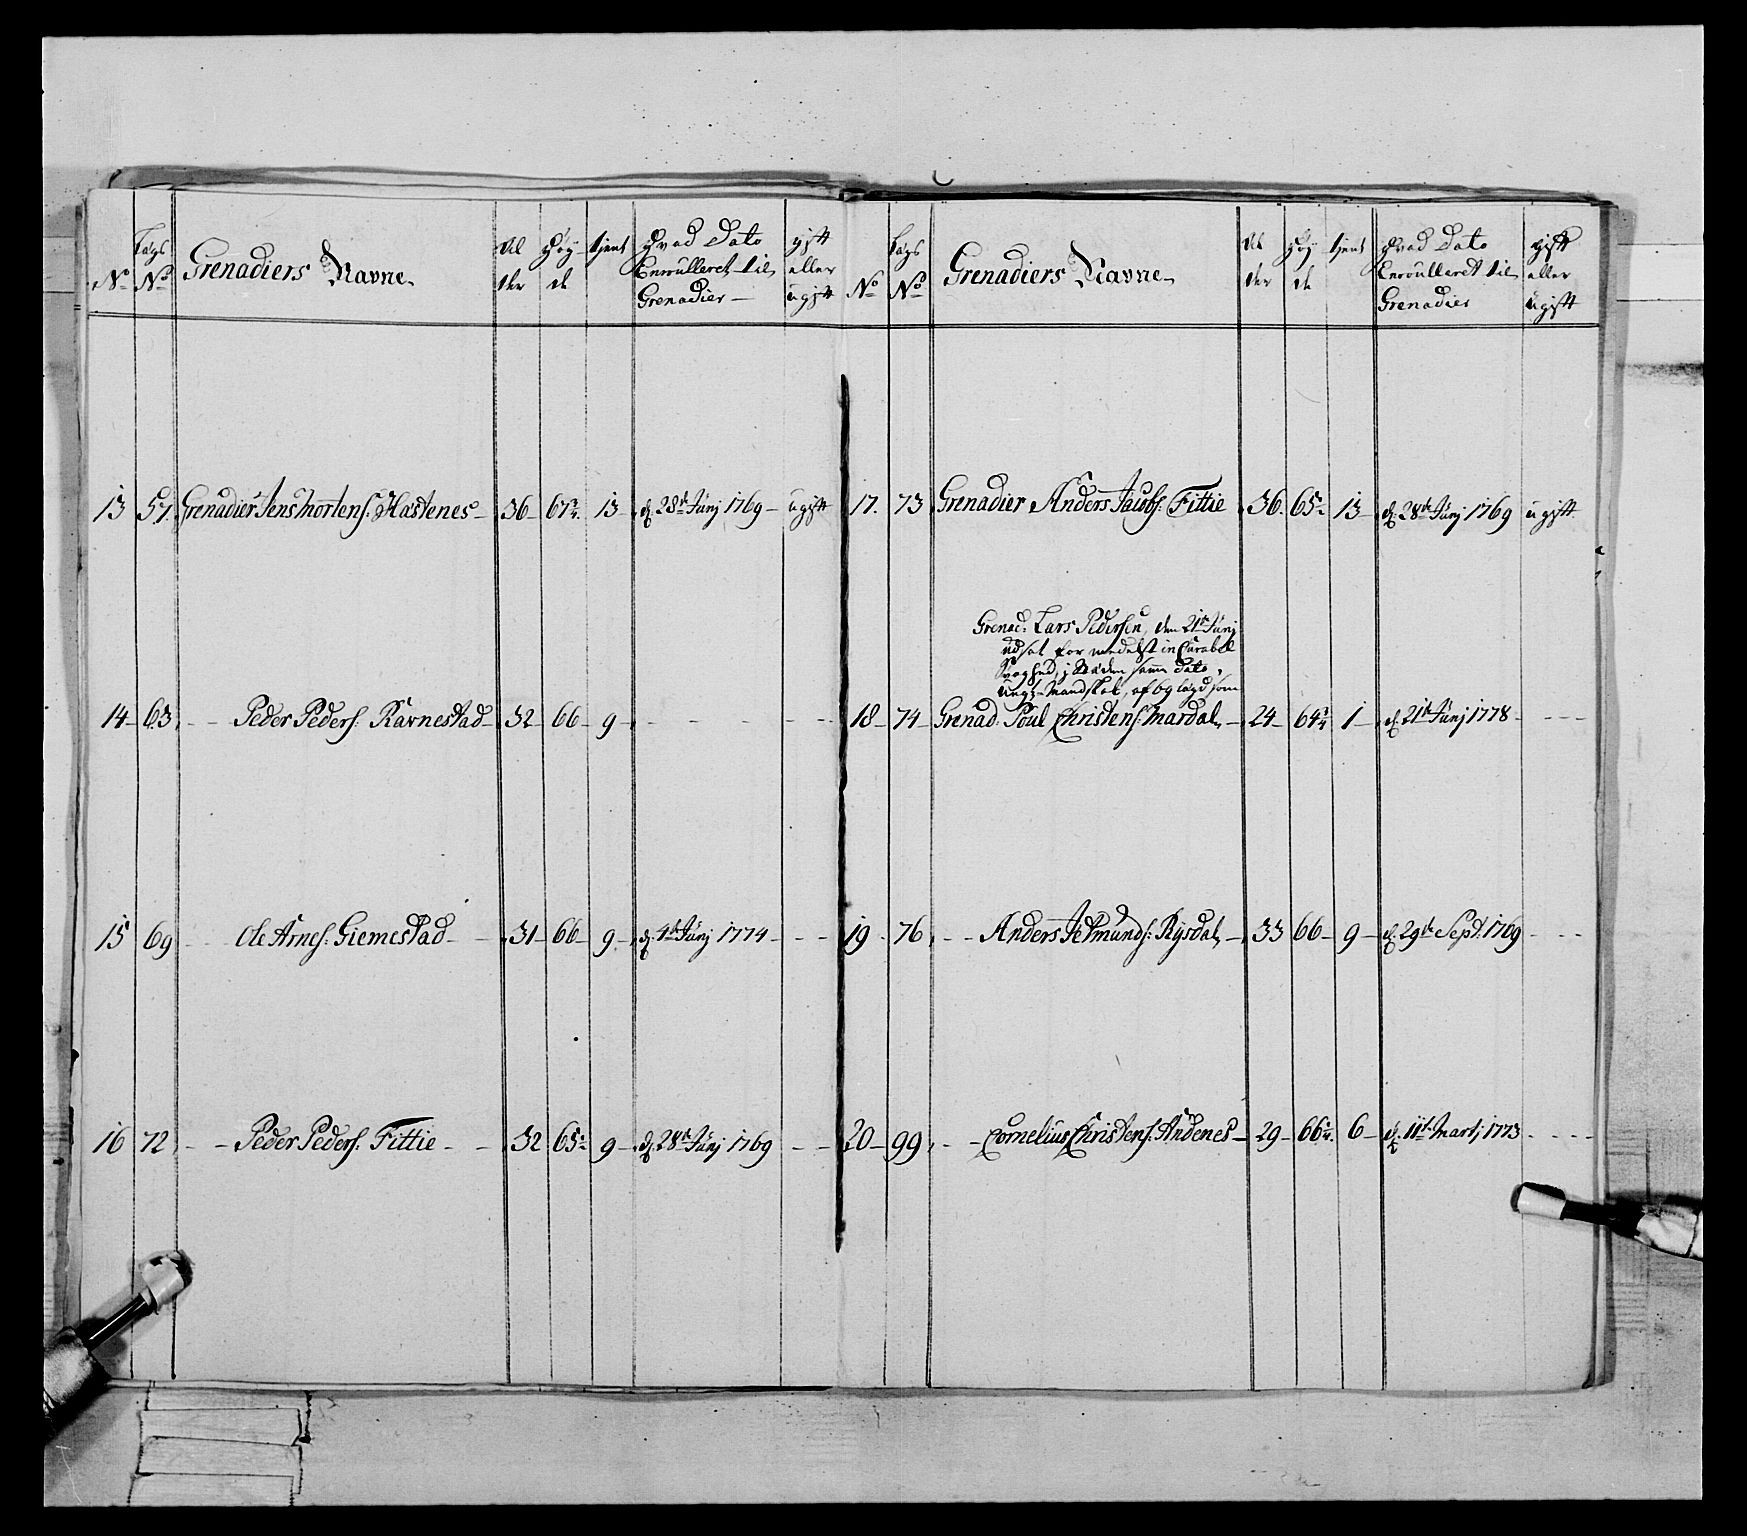 No Lægs No Grenadiers Navne Al der Høy de tjent Hvad Dato Enroulleret til Grenadier gift eller ugift
13 57 Grenadier Jens Mortens: Hastenes 36 67 13 d: 28de Junj 1769 ugift
14 63 Peder Peders: Ravnestad 32 66 9
15 69 Ole Arnes: Giemestad 31 66 9 d: 4de Junj 1774
16 72 Peder Peders: Fittie 32 65 9 d: 28de Junj 1769
No Lægs No Grenadiers Navne Al der Høy de tjent Hvad Dato Enroulleret til Grenadier gift eller ugift
17. 73 Grenadier Anders Jacobs: Fittie 36 65 13 d: 28de Junj 1769 ugift
Grenad: Lars Pedersen, den 21de Junj
udsat formedelst incurabel
Svaghed, j Stæden samme Dato,
Ungt-Mandskab, af 69 lægd som
18 74 Grenad: Poul Christens: Mardal 24 64 1 d: 21de Junj 1778
19 76 Anders Jetmunds: Rysdal 33 66 9 d: 29de Sept: 1769
20 99 Cornelius Christens: Andenes 29 66 6 d: 11te Martj 1773